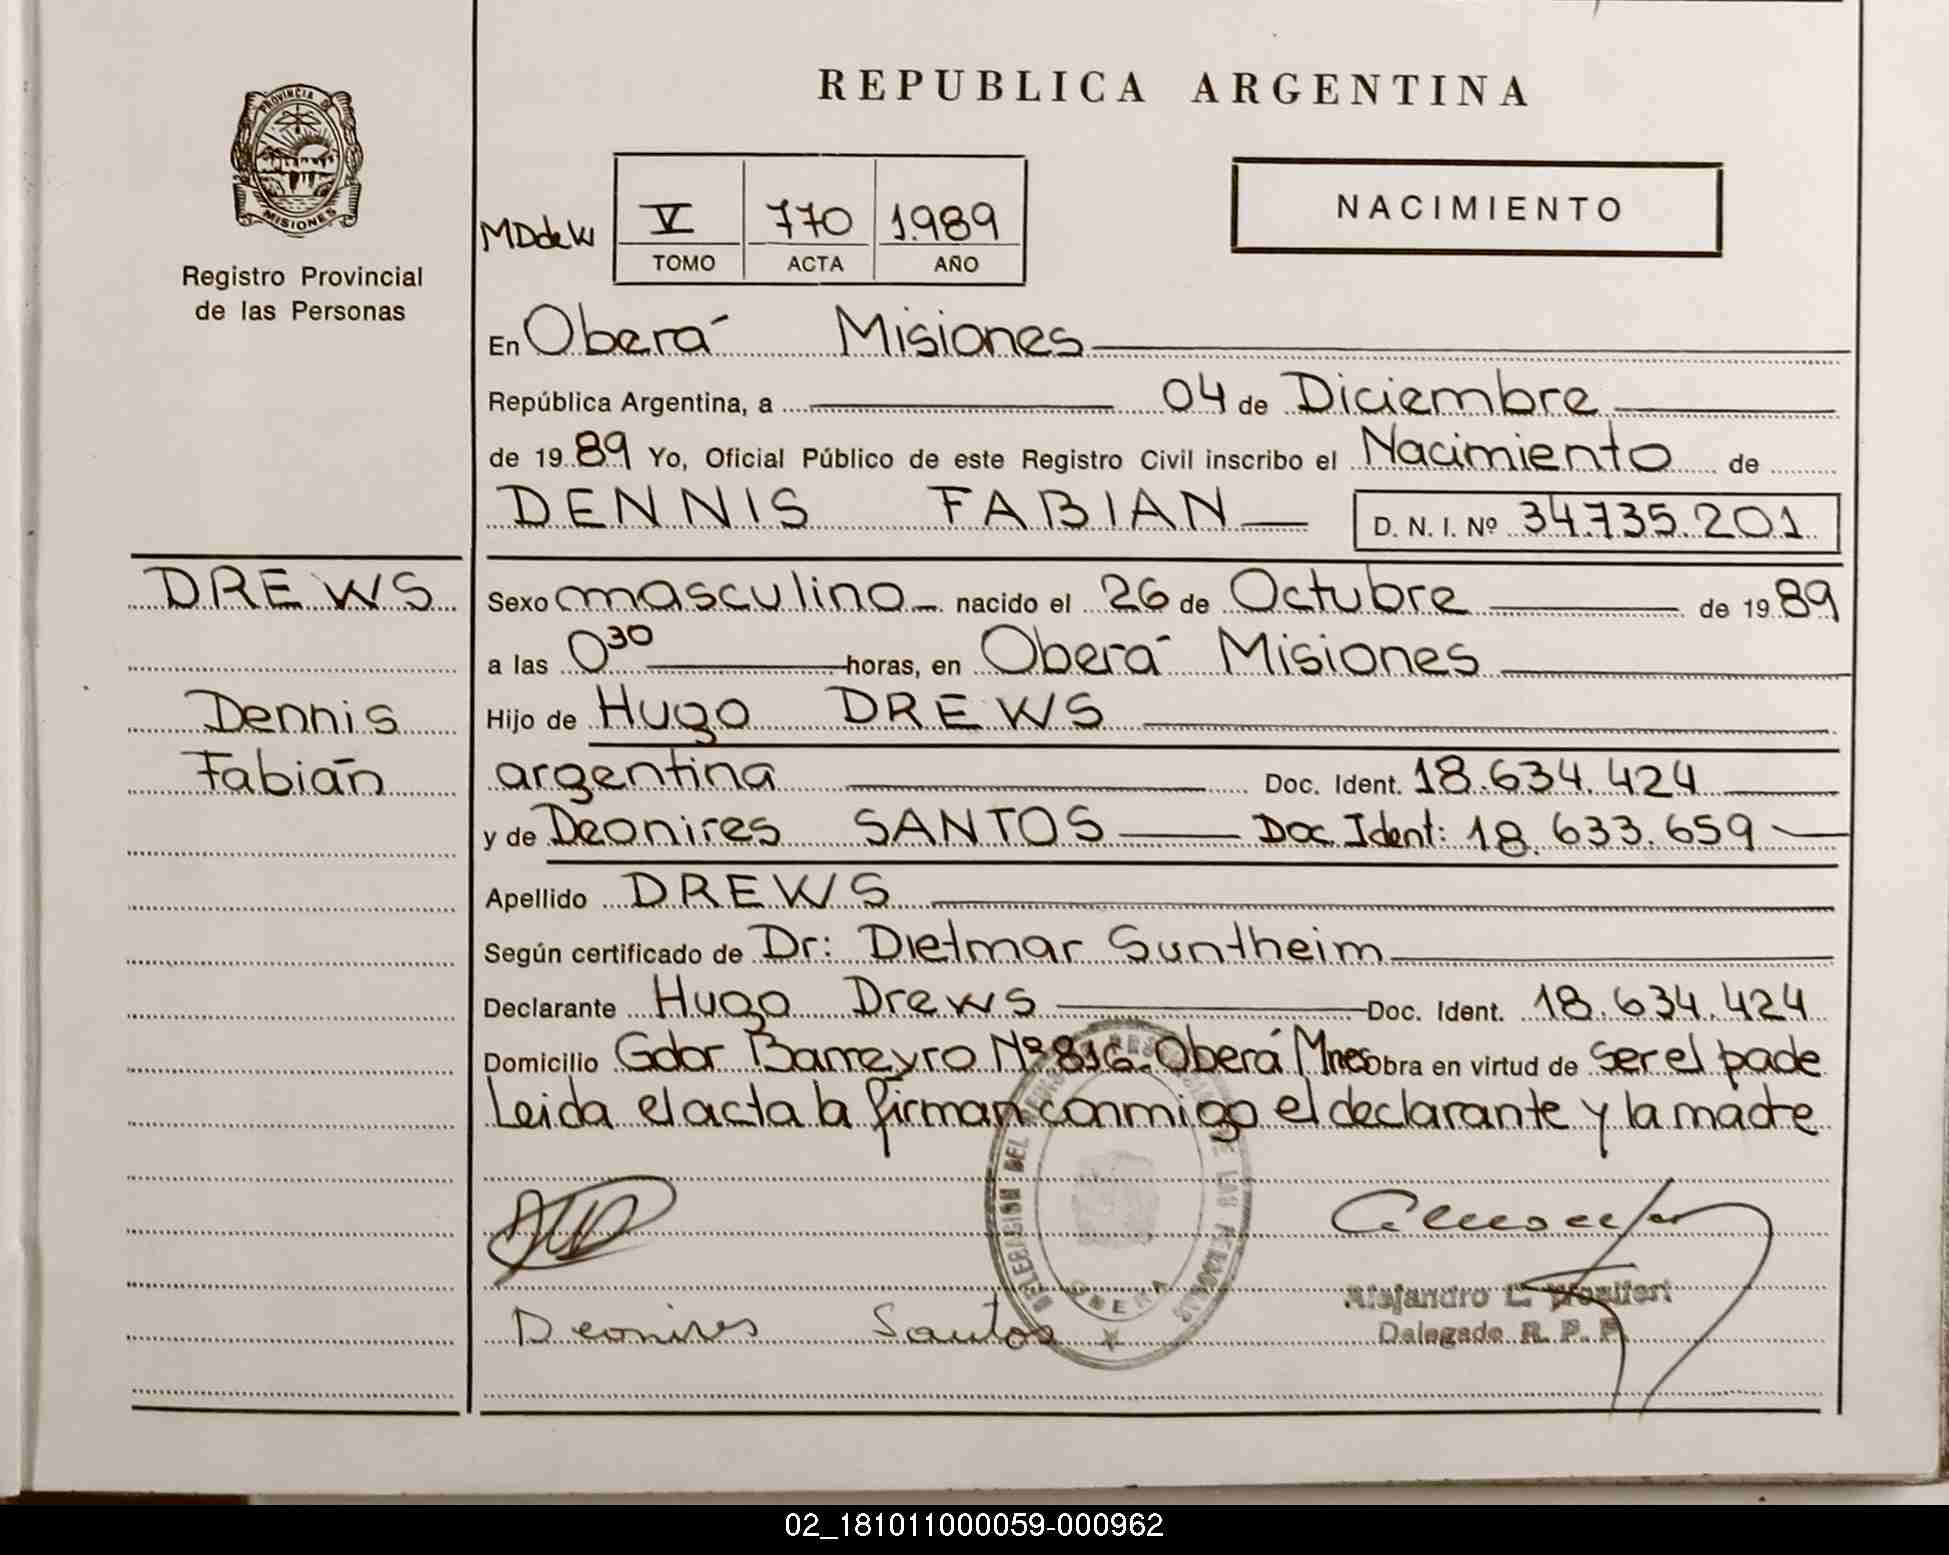 REPUBLICA ARGENTINA
PROVINCIA DE
MISIONES
Registro Provincial
de las Personas
NACIMIENTO
MDdeW V 770 1989
TOMO ACTA AÑO
En Oberá Misiones
República Argentina, a 04 de Diciembre
de 1989 Yo, Oficial Público de este Registro Civil inscribo el Nacimiento de
DENNIS FABIAN D. N. I. Nº 34.735.201
DREWS
Dennis
Fabián
Sexo masculino nacido el 26 de Octubre de 1989
a las 0 30 horas, en Oberá Misiones
Hijo de Hugo DREWS
argentina Doc. Ident. 18.634.424
y de Deonires SANTOS Doc. Ident: 18.633.659
Apellido DREWS
Según certificado de Dr: Dietmar Suntheim
Declarante Hugo Drews Doc. Ident. 18.634.424
Domicilio Gdor Barreyro Nº 816. Oberá Mnes Obra en virtud de ser el pade
Leida el acta la firman conmigo el declarante y la madre
DELEGACION DEL REGISTRO DE LAS PERSONAS
OBERA
Deonires Santos
Alejandro L. Monlfort
Delegado R. P. P.
02_181011000059-000962